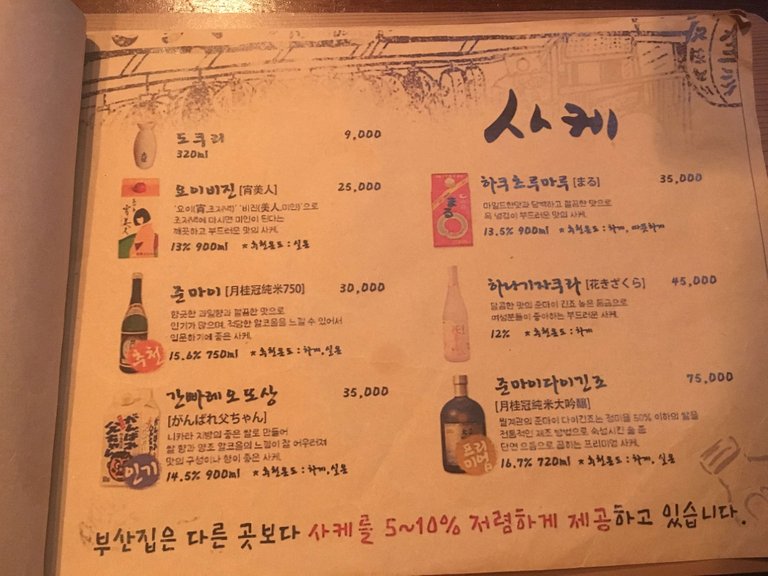 사케
도쿠리 9,000
320ml
요이비진 [宵美人] 25,000
'요이(宵,초저녁)' '비진(美人,미인)'으로
초저녁에 마시면 미인이 된다는
깨끗하고 부드러운 맛의 사케.
13% 900ml *추천온도 : 실온
준마이 [月桂冠純米750] 30,000
향긋한 과일향과 깔끔한 맛으로
인기가 많으며, 적당한 알코올을 느낄 수 있어서
입문하기에 좋은 사케.
추천
15.6% 750ml *추천온도 : 차게, 실온
간빠레 오또상 35,000
[がんばれ父ちゃん]
니가타 지방의 좋은 쌀로 만들어
쌀 향과 양조 알코올의 느낌이 잘 어우러져
맛의 구성이나 향이 좋은 사케.
인기
14.5% 900ml *추천온도 : 차게, 실온
하쿠츠루마루 [まる] 35,000
마일드한맛과 담백하고 깔끔한 맛으로
목 넘김이 부드러운 맛의 사케.
まる
13.5% 900ml *추천온도 : 차게, 따뜻하게
하나기자쿠라 [花きざくら] 45,000
달콤한 맛의 준마이 긴죠 높은 등급으로
여성분들이 좋아하는 부드러운 사케.
12% *추천온도 : 차게
준마이다이긴죠 75,000
[月桂冠純米大吟醸]
월계관의 준마이 다이긴죠는 정미율 50% 이하의 쌀을
전통적인 제조 방법으로 숙성시킨 술 중
단연 으뜸으로 꼽히는 프리미엄 사케.
프리
미엄
16.7% 720ml *추천온도 : 차게, 실온
부산집은 다른 곳보다 사케를 5~10% 저렴하게 제공하고 있습니다.